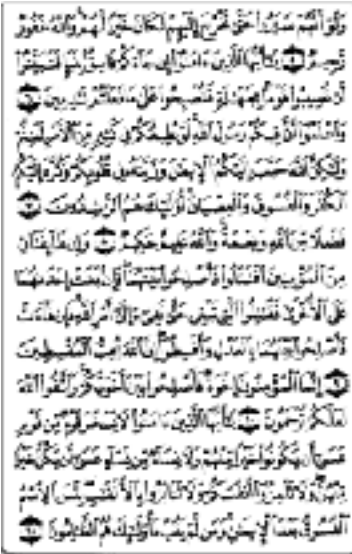 ولو أنهم صبروا حتى تخرج إليهم لكان خيرا لهم والله غفور
رحيم ۝ يا أيها الذين ءامنوا إن جاءكم فاسق بنبإ فتبينوا
أن تصيبوا قوما بجهالة فتصبحوا على ما فعلتم نادمين ۝
واعلموا أن فيكم رسول الله لو يطيعكم في كثير من الأمر لعنتم
ولكن الله حبب إليكم الإيمان وزينه في قلوبكم وكره إليكم
الكفر والفسوق والعصيان أولئك هم الراشدون ۝
فضلا من الله ونعمة والله عليم حكيم ۝ وإن طائفتان
من المؤمنين اقتتلوا فأصلحوا بينهما فإن بغت إحداهما
على الأخرى فقاتلوا التي تبغي حتى تفيء إلى أمر الله فإن فاءت
فأصلحوا بينهما بالعدل وأقسطوا إن الله يحب المقسطين
۝ إنما المؤمنون إخوة فأصلحوا بين أخويكم واتقوا الله
لعلكم ترحمون ۝ يا أيها الذين ءامنوا لا يسخر قوم من قوم
عسى أن يكونوا خيرا منهم ولا نساء من نساء عسى أن يكن خيرا
منهن ولا تلمزوا أنفسكم ولا تنابزوا بالألقاب بئس الاسم
الفسوق بعد الإيمان ومن لم يتب فأولئك هم الظالمون ۝